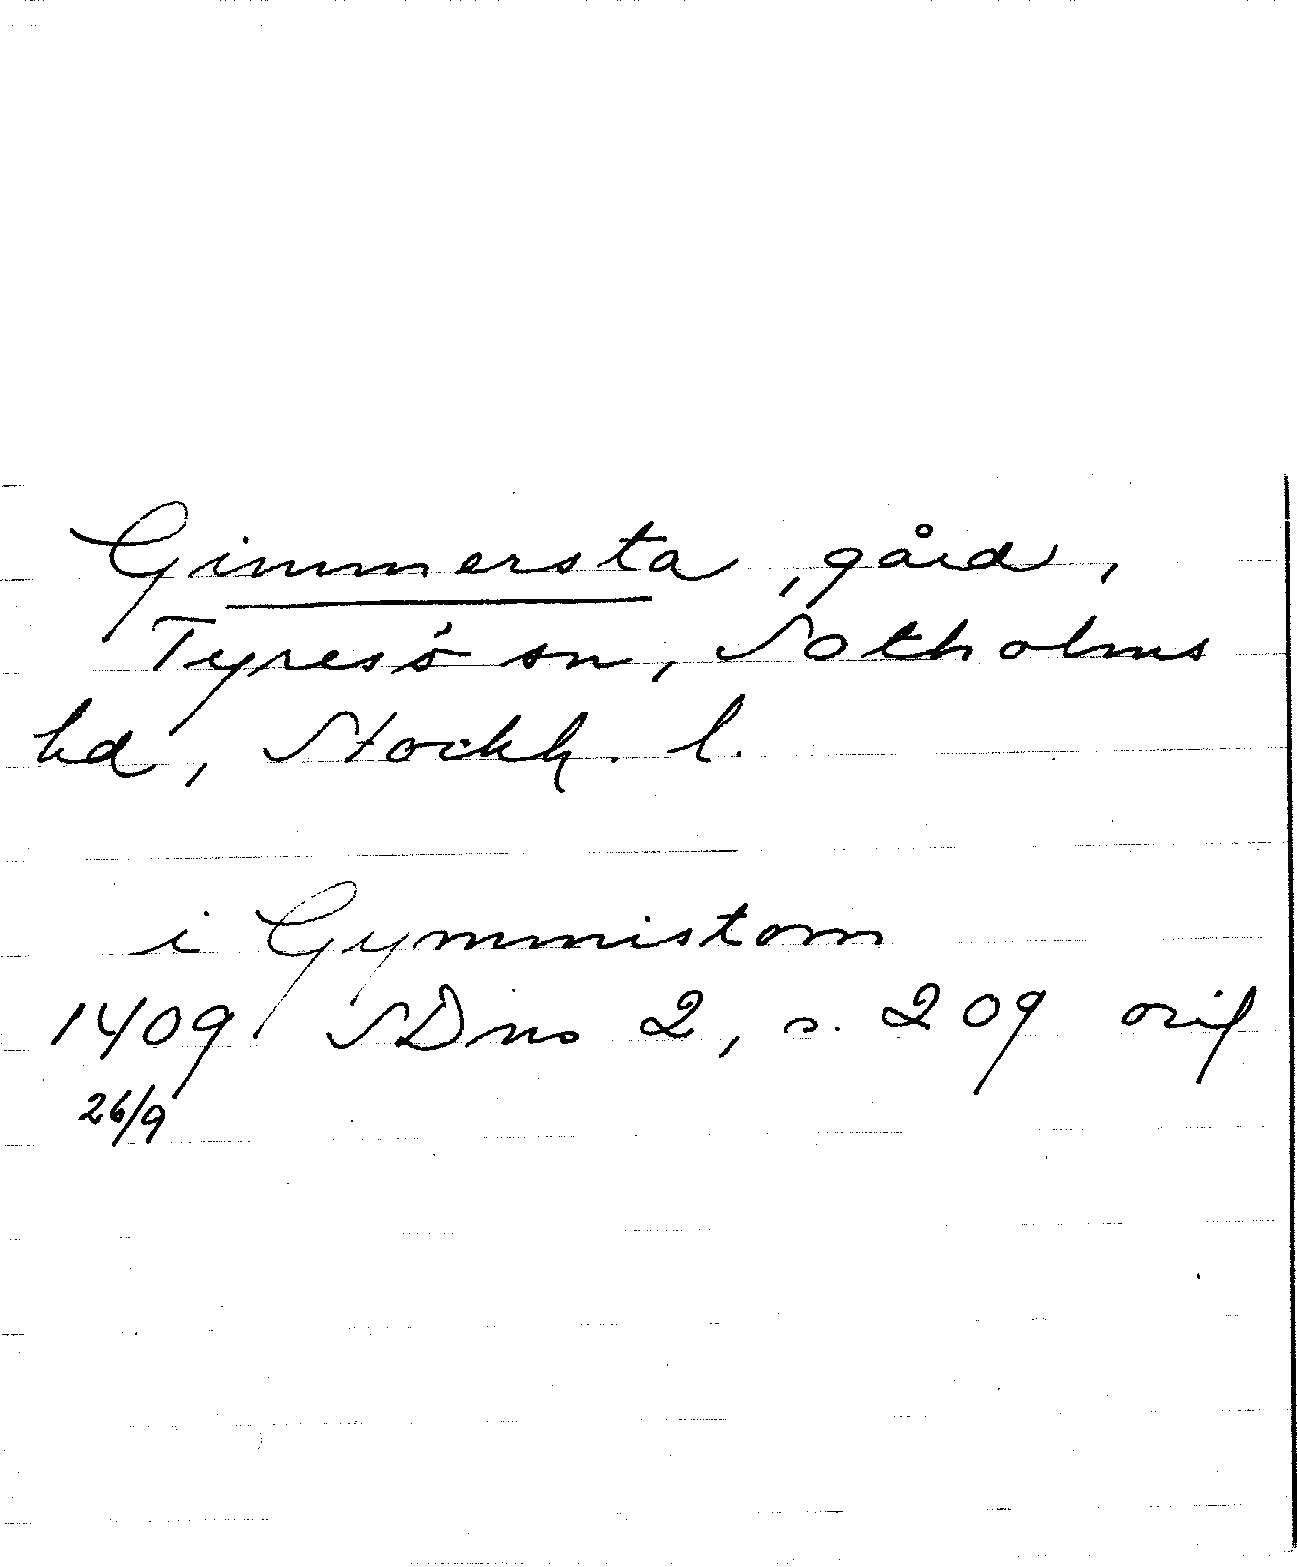 Gimmersta, gård,
Tyresö sn, Sotholms
hd, Stockh. l.
i Gymmistom
1409 SDns 2, s. 209 orig
26/9